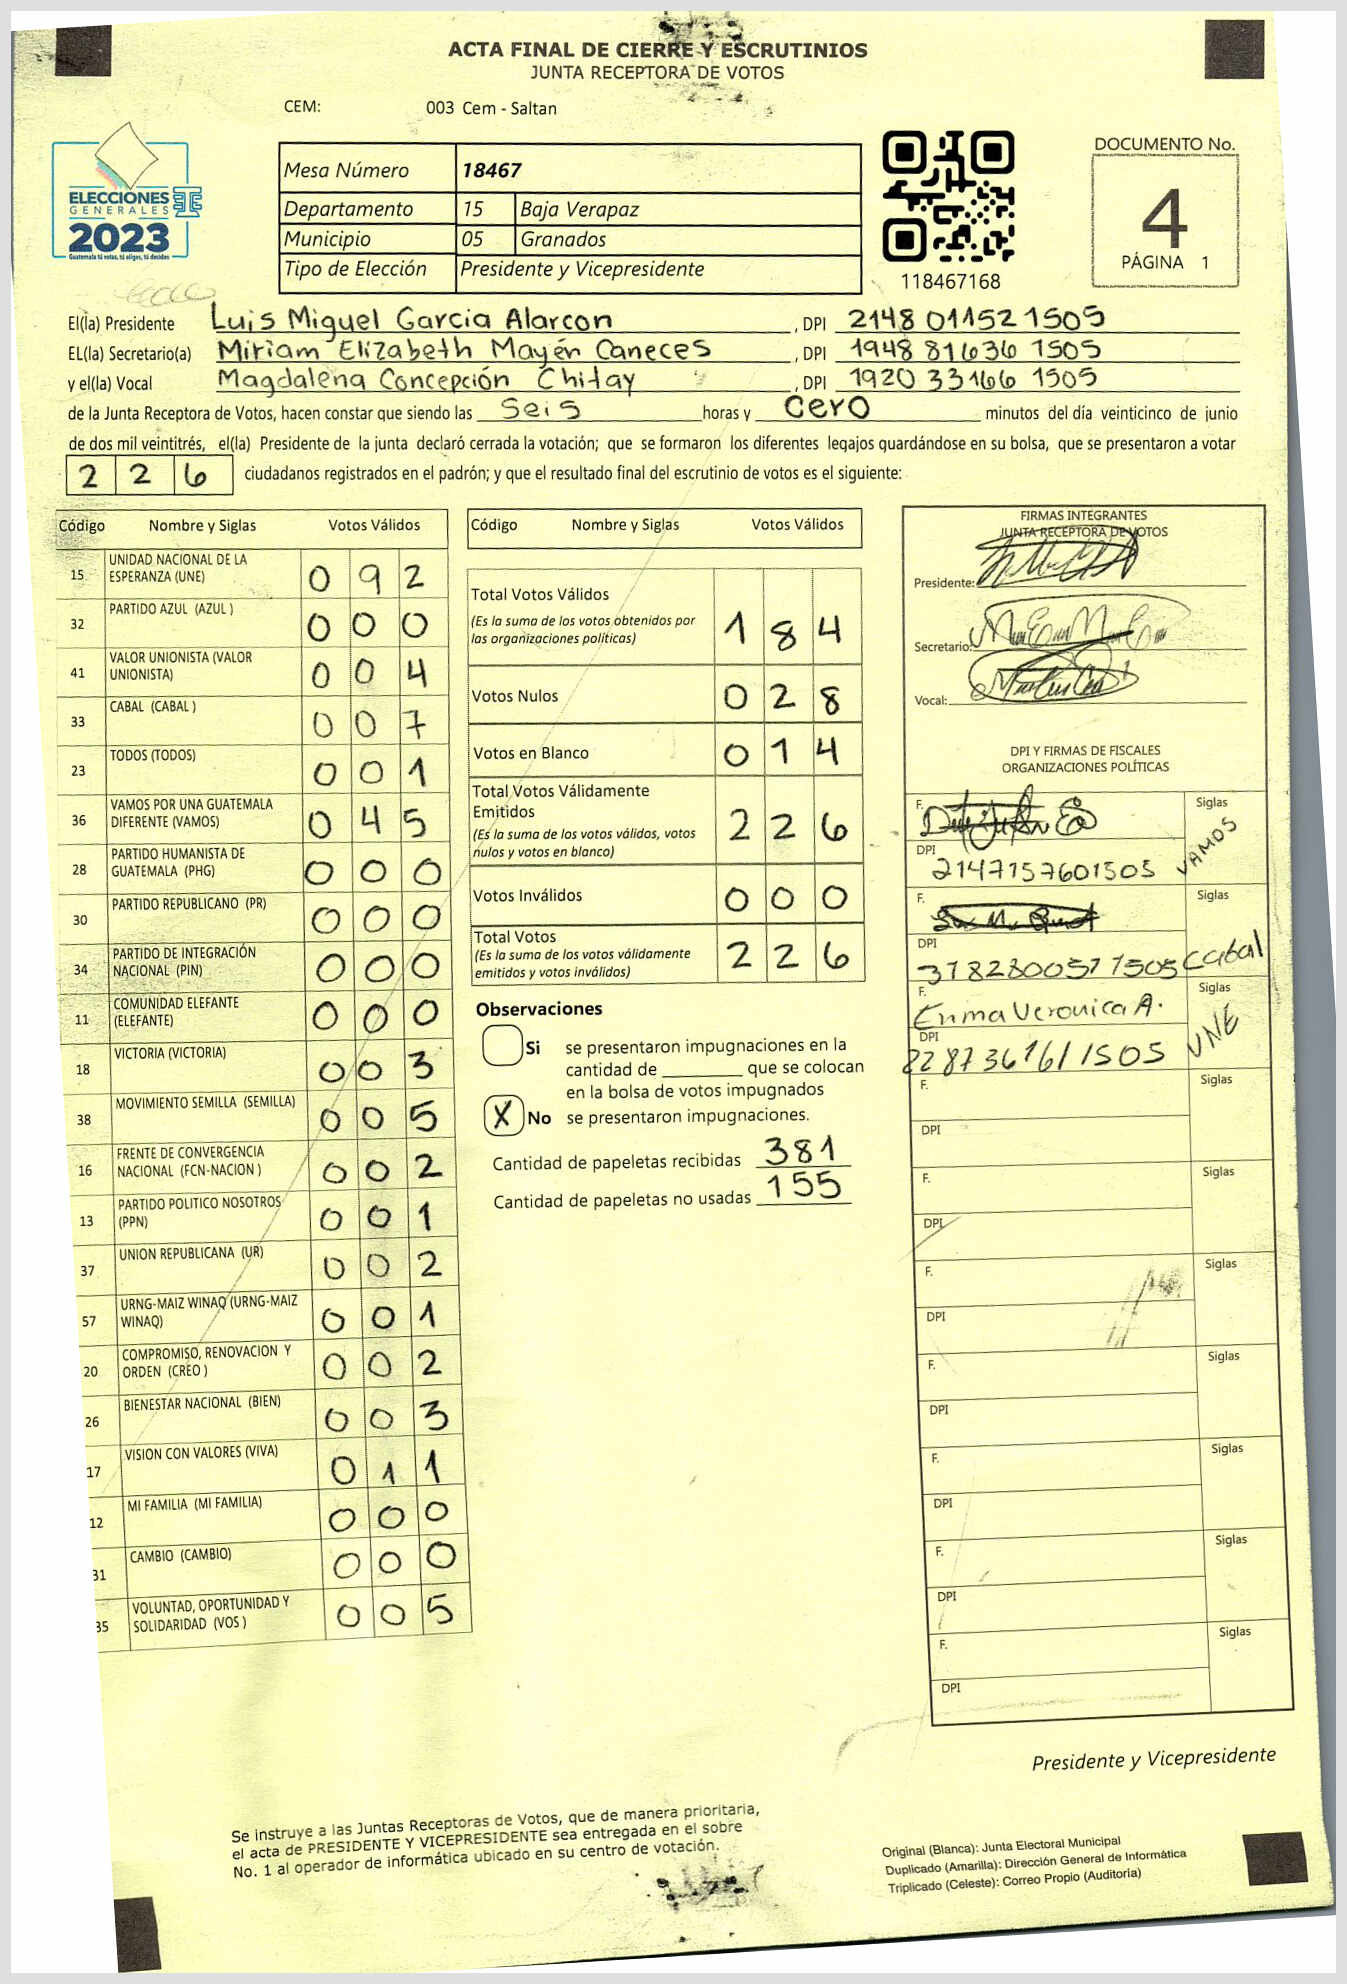 ACTA FINAL DE CIERRE Y ESCRUTINIOS
JUNTA RECEPTORA DE VOTOS
CEM: 003 Cem - Saltan
ELECCIONES
GENERALES
2023
Guatemala tú votas, tú eliges, tú decides
Mesa Número 18467
Departamento 15 Baja Verapaz
Municipio 05 Granados
Tipo de Elección Presidente y Vicepresidente
118467168
DOCUMENTO No.
4
PÁGINA 1
El(la) Presidente Luis Miguel Garcia Alarcon , DPI 2148 01152 1505
EL(la) Secretario(a) Miriam Elizabeth Mayén Caneces , DPI 1948 81636 1505
y el(la) Vocal Magdalena Concepción Chitay , DPI 1920 33166 1505
de la Junta Receptora de Votos, hacen constar que siendo las Seis horas y cero minutos del día veinticinco de junio
de dos mil veintitrés, el(la) Presidente de la junta declaró cerrada la votación; que se formaron los diferentes legajos guardándose en su bolsa, que se presentaron a votar
2 2 6 ciudadanos registrados en el padrón; y que el resultado final del escrutinio de votos es el siguiente:
Código Nombre y Siglas Votos Válidos
15 UNIDAD NACIONAL DE LA
ESPERANZA (UNE) 0 9 2
32 PARTIDO AZUL (AZUL ) 0 0 0
41 VALOR UNIONISTA (VALOR
UNIONISTA) 0 0 4
33 CABAL (CABAL ) 0 0 7
23 TODOS (TODOS) 0 0 1
36 VAMOS POR UNA GUATEMALA
DIFERENTE (VAMOS) 0 4 5
28 PARTIDO HUMANISTA DE
GUATEMALA (PHG) 0 0 0
30 PARTIDO REPUBLICANO (PR) 0 0 0
34 PARTIDO DE INTEGRACIÓN
NACIONAL (PIN) 0 0 0
11 COMUNIDAD ELEFANTE
(ELEFANTE) 0 0 0
18 VICTORIA (VICTORIA) 0 0 3
38 MOVIMIENTO SEMILLA (SEMILLA) 0 0 5
16 FRENTE DE CONVERGENCIA
NACIONAL (FCN-NACION ) 0 0 2
13 PARTIDO POLITICO NOSOTROS
(PPN) 0 0 1
37 UNION REPUBLICANA (UR) 0 0 2
57 URNG-MAIZ WINAQ (URNG-MAIZ
WINAQ) 0 0 1
20 COMPROMISO, RENOVACION Y
ORDEN (CREO ) 0 0 2
26 BIENESTAR NACIONAL (BIEN) 0 0 3
17 VISION CON VALORES (VIVA) 0 1 1
12 MI FAMILIA (MI FAMILIA) 0 0 0
31 CAMBIO (CAMBIO) 0 0 0
35 VOLUNTAD, OPORTUNIDAD Y
SOLIDARIDAD (VOS ) 0 0 5
Código Nombre y Siglas Votos Válidos
Total Votos Válidos
(Es la suma de los votos obtenidos por
las organizaciones políticas) 1 8 4
Votos Nulos 0 2 8
Votos en Blanco 0 1 4
Total Votos Válidamente
Emitidos
(Es la suma de los votos válidos, votos
nulos y votos en blanco) 2 2 6
Votos Inválidos 0 0 0
Total Votos
(Es la suma de los votos válidamente
emitidos y votos inválidos) 2 2 6
Observaciones
Si se presentaron impugnaciones en la
cantidad de ________ que se colocan
en la bolsa de votos impugnados
X No se presentaron impugnaciones.
Cantidad de papeletas recibidas 381
Cantidad de papeletas no usadas 155
FIRMAS INTEGRANTES
JUNTA RECEPTORA DE VOTOS
Presidente:
Secretario:
Vocal:
DPI Y FIRMAS DE FISCALES
ORGANIZACIONES POLÍTICAS
F. Siglas
DPI VAMOS
2147157601505
F. Siglas
DPI
3182800571505 Cabal
F. Siglas
Enma Veronica A.
DPI UNE
2287361611505
F. Siglas
DPI
F. Siglas
DPI
F. Siglas
DPI
F. Siglas
DPI
F. Siglas
DPI
F. Siglas
DPI
F. Siglas
DPI
Presidente y Vicepresidente
Se instruye a las Juntas Receptoras de Votos, que de manera prioritaria,
el acta de PRESIDENTE Y VICEPRESIDENTE sea entregada en el sobre
No. 1 al operador de informática ubicado en su centro de votación.
Original (Blanca): Junta Electoral Municipal
Duplicado (Amarilla): Dirección General de Informática
Triplicado (Celeste): Correo Propio (Auditoría)